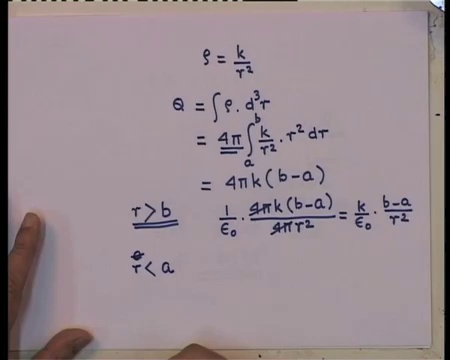 ρ = k/r²
Q = ∫ρ. d³r
= 4π ∫ₐᵇ k/r² . r² dr
= 4πk(b-a)
r > b 1/ε₀ . 4πk(b-a)/4πr² = k/ε₀ . b-a/r²
r < a